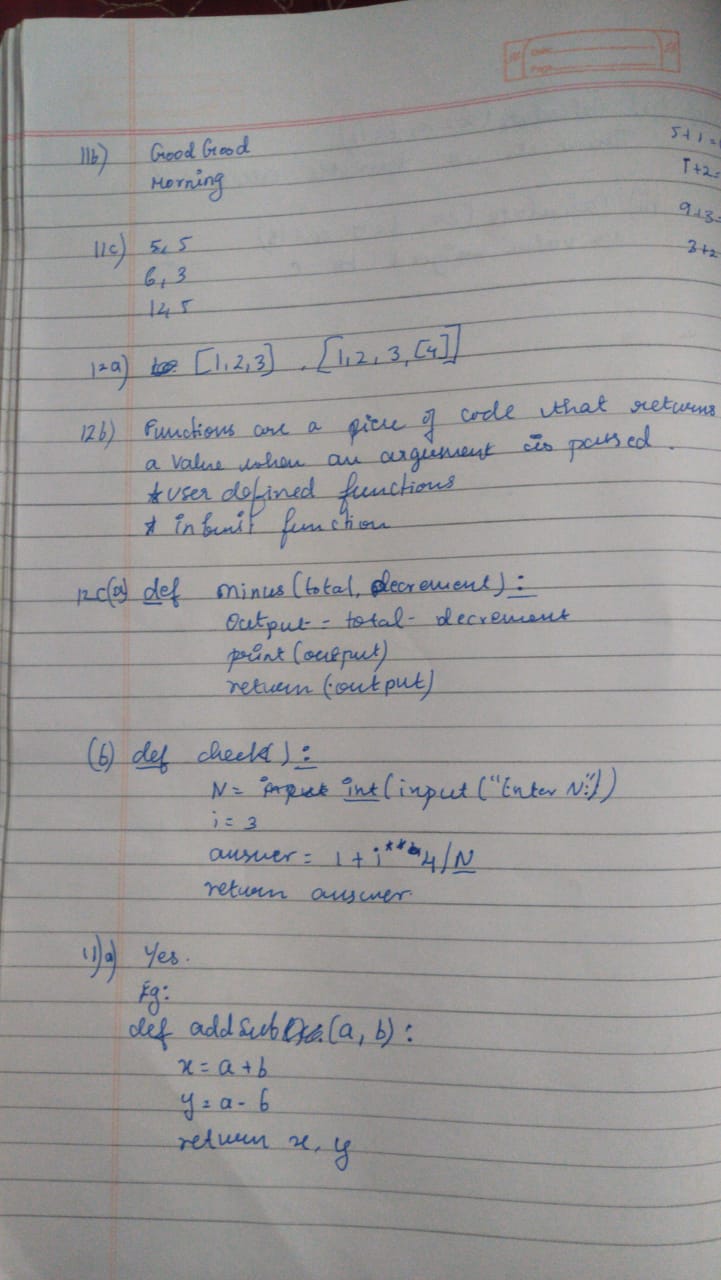 Date:
Page
5+1=
9+3=
3+2
11b) Good Good
Morning
11c) 5, 5
6, 3
14 5
12a) [1,2,3] , [1,2,3,[4]]
12b) Functions are a piece of code that returns
a value when an argument is passed.
* user defined functions
* inbuilt function
12c(a) def minus(total, decrement):
output = total - decrement
print(output)
return(output)
(b) def check():
N = int(input("Enter N:"))
i = 3
answer = 1 + i**4/N
return answer.
11)a) Yes.
Eg:
def addSub (a, b):
x = a + b
y = a - b
return x, y